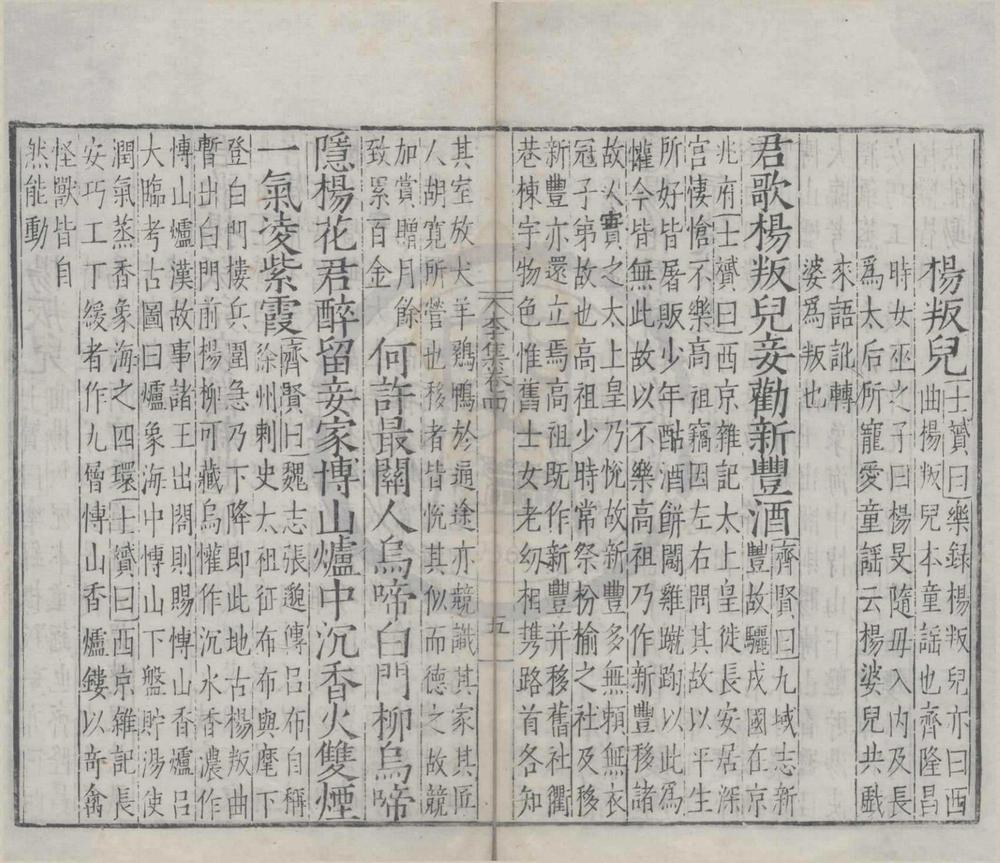 楊叛兒
士贇曰樂録楊叛兒亦曰西
曲楊叛兒本童謡也齊隆昌
時女巫之子曰楊旻隨母入内及長
爲太后所寵愛童謡云楊婆兒共戲
來語訛轉
婆爲叛也
君歌楊叛兒妾勸新豐酒
齊賢曰九域志新
豐故驪戎國在京
兆府士贇曰西京雜記太上皇徙長安居深
宫悽愴不樂高祖竊因左右問其故以平生
所好皆屠販少年酤酒餅鬪雞蹴踘以此爲
懽今皆無此故以不樂高祖乃作新豐移諸
故人實之太上皇乃悅故新豐多無賴無衣
冠子第故也高祖少時常祭枌榆之社及移
新豐亦還立焉高祖既作新豐并移舊社衢
巷棟宇物色惟舊士女老幼相携路首各知
李集卷四
五
其室放犬羊鶏鴨於通途亦競識其家其匠
人胡寛所營也移者皆悅其似而德之故競
加賞贈月餘
致累百金
何許最關人烏啼白門柳烏啼
隱楊花君醉留妾家博山爐中沉香火雙煙
一氣凌紫霞
齊賢曰魏志張邈傳吕布自稱
徐州刺史太祖征布布與麾下
登白門樓兵圍急乃下降即此地古楊叛曲
暫出白門前楊柳可藏烏懽作沉水香濃作
愽山爐漢故事諸王出閤則賜愽山香爐吕
大臨考古圖曰爐象海中愽山下盤貯湯使
潤氣蒸香象海之四環士贇曰西京雜記長
安巧工丁緩者作九層愽山香爐鏤以奇禽
怪獸皆自
然能動